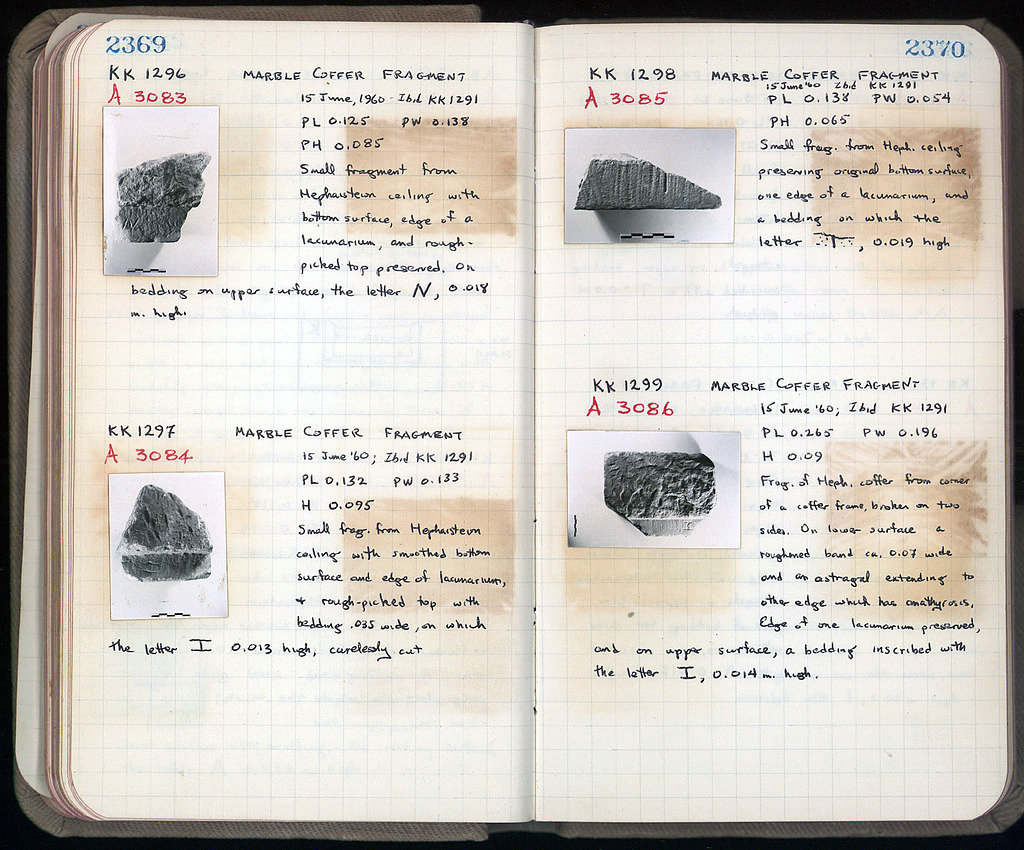 2369
KK 1296 MARBLE COFFER FRAGMENT
A 3083 15 June, 1960 - Ibid KK 1291
PL 0.125 PW 0.138
PH 0.085
Small fragment from
Hephaisteion ceiling with
bottom surface, edge of a
lacunarium, and rough-
picked top preserved. On
bedding on upper surface, the letter N, 0.018
m. high.
KK 1297 MARBLE COFFER FRAGMENT
A 3084 15 June '60; Ibid KK 1291
PL 0.132 PW 0.133
H 0.095
Small frag. from Hephaisteion
ceiling with smoothed bottom
surface and edge of lacunarium,
+ rough-picked top with
bedding .035 wide, on which
the letter I 0.013 high, carelessly cut
2370
KK 1298 MARBLE COFFER FRAGMENT
15 June '60 Ibid KK 1291
A 3085 PL 0.138 PW 0.054
PH 0.065
Small frag. from Heph. ceiling
preserving original bottom surface,
one edge of a lacunarium, and
a bedding on which the
letter T, 0.019 high
KK 1299 MARBLE COFFER FRAGMENT
A 3086 15 June '60; Ibid KK 1291
PL 0.265 PW 0.196
H 0.09
Frag. of Heph. coffer from corner
of a coffer frame, broken on two
sides. On lower surface a
roughened band ca. 0.07 wide
and an astragal extending to
other edge which has anathyrosis.
Edge of one lacunarium preserved,
and on upper surface, a bedding inscribed with
the letter I, 0.014 m. high.